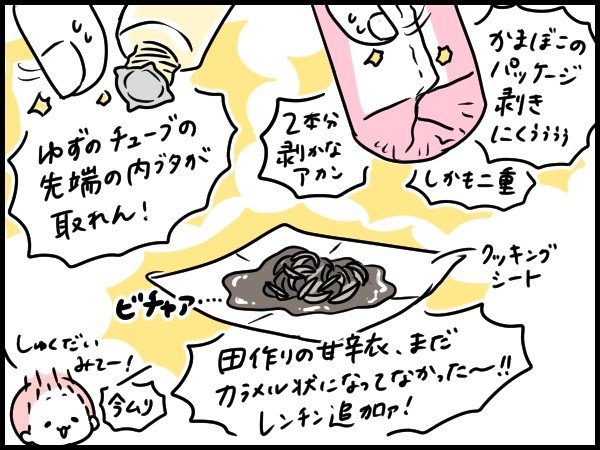 かまぼこの
パッケージ
剥き
にくぅぅぅぅ
しかも二重
2本分
剥かな
アカン
ゆずのチューブの
先端の内ブタが
取れん!
クッキング
シート
ビチャァ…
田作りの甘辛衣、まだ
カラメル状になってなかった〜!!
レンチン追加ァ!
しゅくだい
みてー!
今ムリ